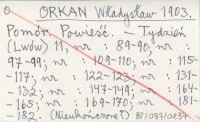 ORKAN Władysław 1903.
Pomór. Powieść. – Tydzień
(Lwów) 11, nr: 89-90, nr:
97-99; nr: 109-110, nr: 115-
-117; nr: 122-123, nr: 131-
-132, nr: 147-149; nr: 164-
-165, nr: 169-170, nr: 181-
-182. (Nieukończone?) BŁ/037/0237